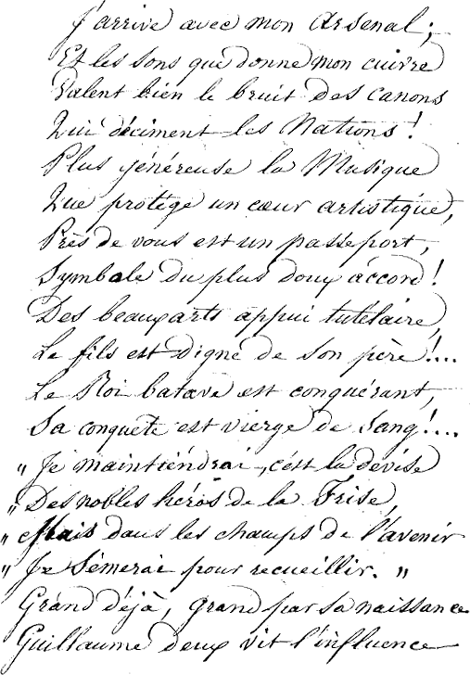 J'arrive avec mon Arsenal ;
Et les sons que donne mon cuivre
Valent bien le bruit des canons
Qui déciment les Nations !
Plus généreuse la Musique
Que protège un cœur artistique,
Près de vous est un passeport,
Symbole du plus doux accord !
Des beaux arts appui tutélaire,
Le fils est digne de son père !....
Le Roi batave est conquérant,
Sa conquête est vierge de Sang !....
" Je maintiendrai, c'est la devise
" Des nobles héros de la Frise,
" Mais dans les champs de l'avenir
" Je Sèmerai pour recueillir. "
Grand déjà, grand par sa naissance
Guillaume deux vit l'influence